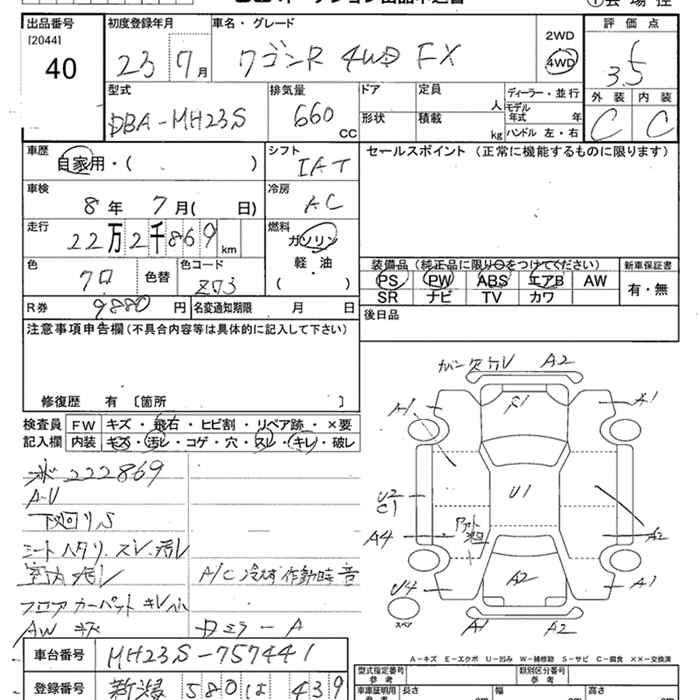 出品番号 初度登録年月 車名・グレード 評価点
[2044]
40
23 7月 ワゴンR 4WD FX
2WD
4WD
3.5
外装 内装
C C
型式 排気量 ドア 定員 人 ディーラー・並行
DBA-MH23S 660 CC
形状 積載 kg モデル年式 年
ハンドル 左・右
車歴 シフト セールスポイント (正常に機能するものに限ります)
自家用・( )
IAT
車検 冷房
8年 7月( 日) AC
走行 燃料
22万2千869km ガソリン
軽・油
( )
色 色替 色コード
クロ ZJ3
装備品(純正品に限り○をつけてください) 新車保証書
PS PW ABS エアB AW 有・無
SR ナビ TV カワ
R券 9880円 名変通知期限 月 日
後日品
注意事項申告欄(不具合内容等は具体的に記入して下さい)
修復歴 有 〔箇所 〕
検査員 FW キズ・飛石・ヒビ割・リペア跡・×要
記入欄 内装 キズ・汚レ・コゲ・穴・スレ・キレ・破レ
222869
A-U
下廻リS
シートヘタリ、スレ、汚レ
室内汚レ A/C 作動時音
フロアカーペット
AWキズ DミラーA
A2
A1 F1 A1
U2
C1
U1
A4 A2
U4 A2 A1
スペア
A1 A2
A-キズ E-エクボ U-凹み W-補修跡 S-サビ C-腐食 ××-交換済
車台番号 MH23S-757441
登録番号 新潟 580 は 439
型式指定番号 類別区分番号
参考 参考
車庫証明用 長さ 幅 高さ
参考 cm cm cm